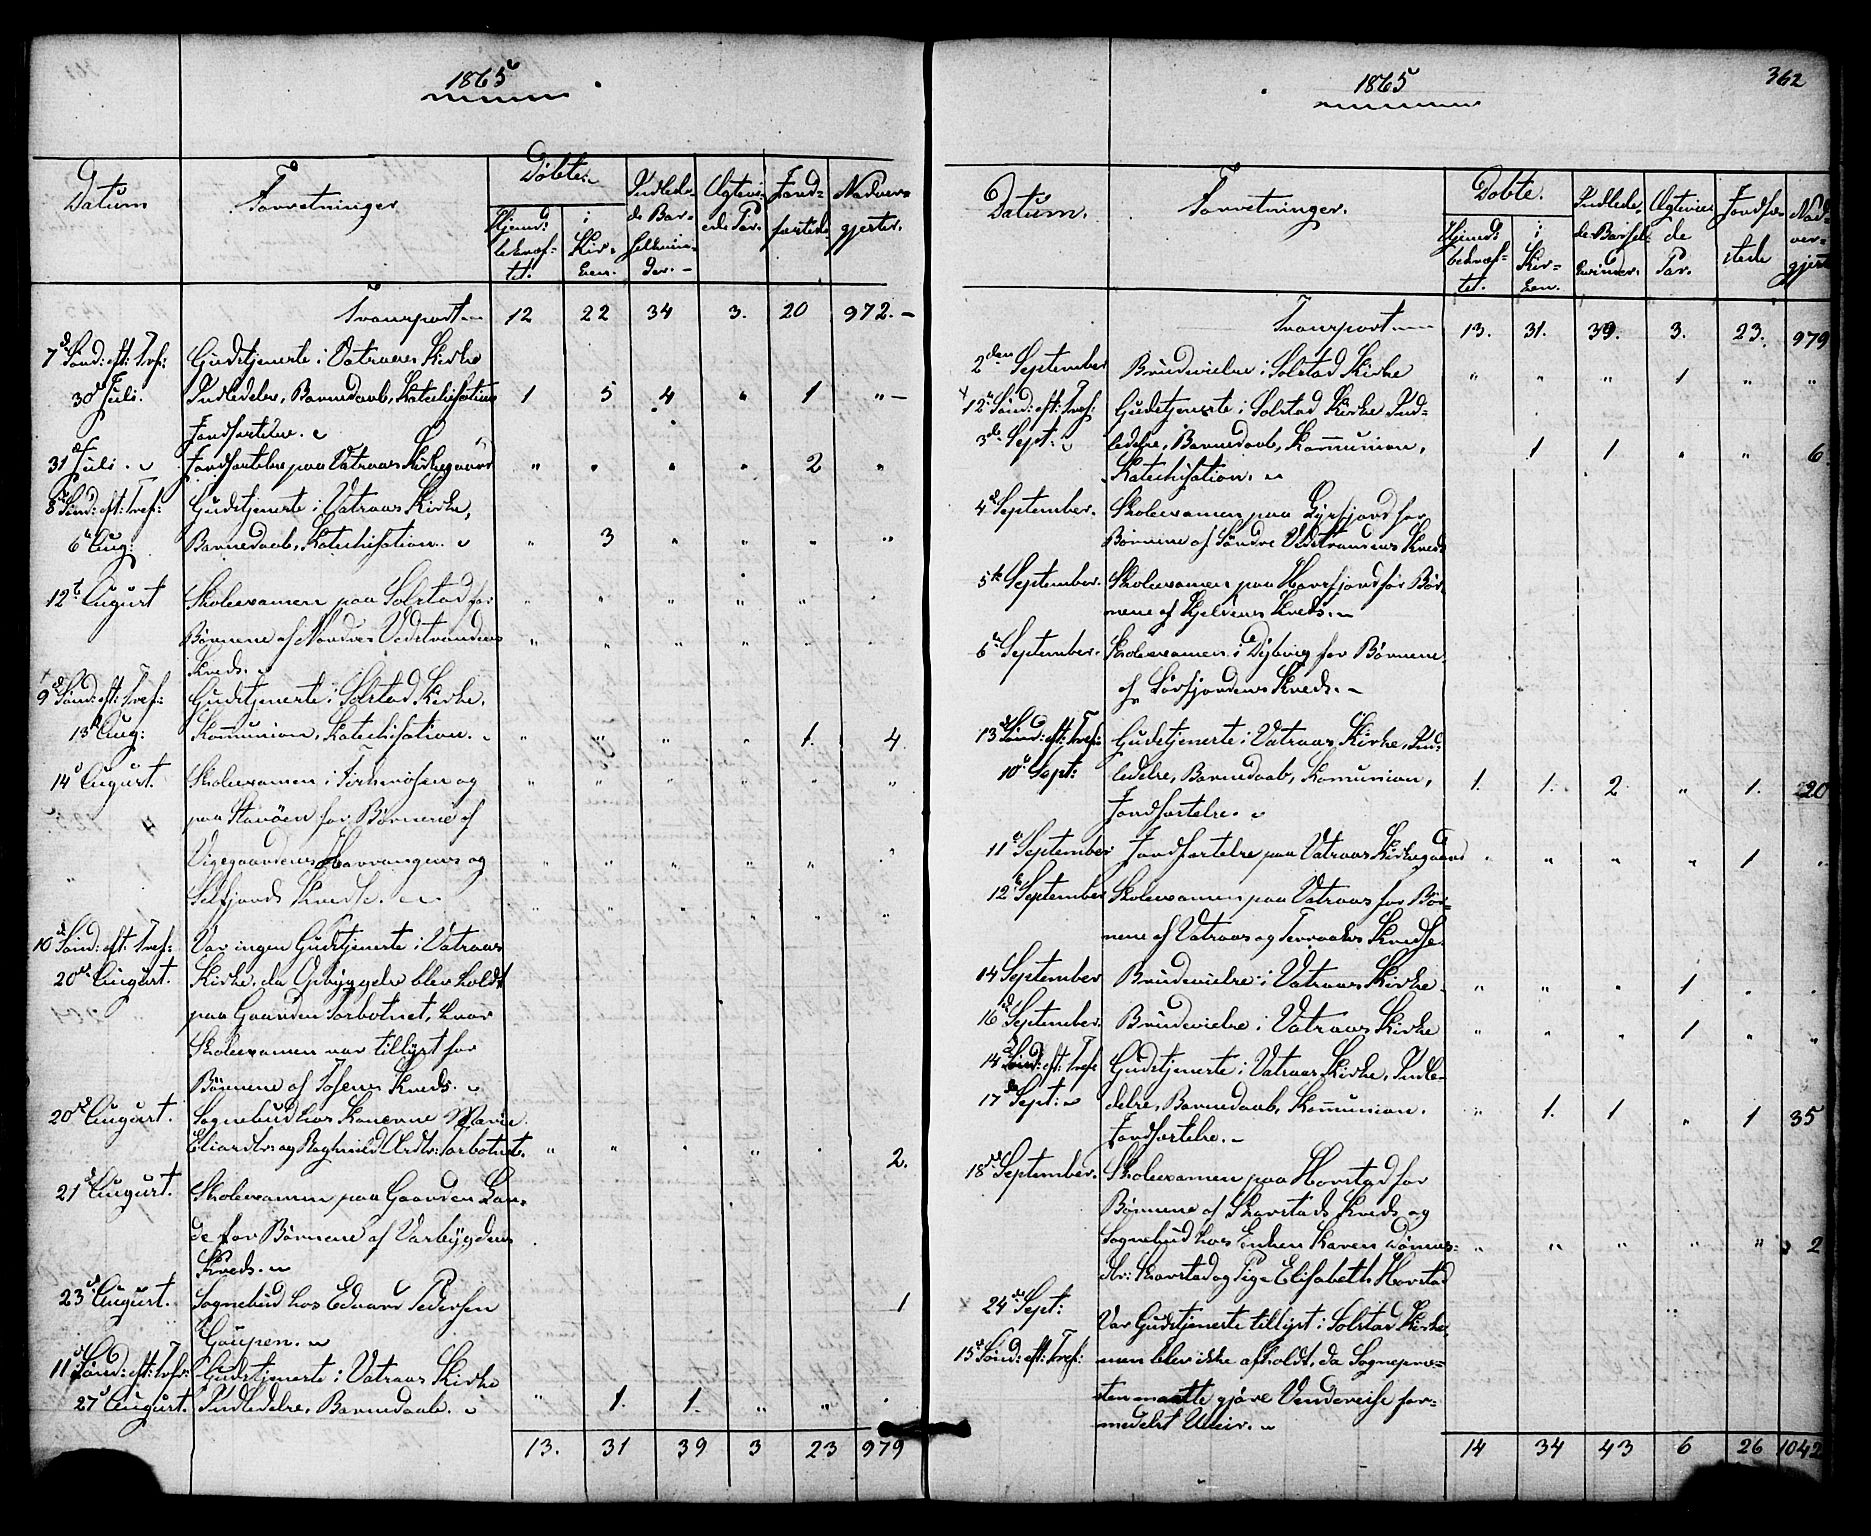 1865
Datum
Forretninger
Döbte.
Hjemd: bekræf- tet.
i Kir- ken.
Indlede- de Bar- selkvin- der.
Ægtevi- ede Par.
Jord- fæstede
Nadver- gjester.
Transport 12 22 34 3. 20 972.
7de Sönd: eft: Tref: Gudstjeneste i Vatraas Kirke
30te Juli. Indledelse, Barnedaab, Katechisation 1 5 4 " 1 "
Jordfæstelse.
31te Juli. Jordfæstelse paa Vatraas Kirkegaard " " " " 2 "
8de Sönd: eft: Tref: Gudstjeneste i Vatraas Kirke,
6te Aug: Barnedaab, Katechisation. " 3 " " " "
12te August Skoleexamen paa Solstad for " " " " " "
Börnene af Nordre Vedstrandens " " " " " "
Kreds.
9de Sönd: eft: Tref: Gudstjeneste i Solstad Kirke.
13de Aug: Kommunion, Katechisation. " " " " 1. 4.
14de August. Skoleexamen i og " " " " " "
paa Havöen for Börnene af
Vigegaardenes og " " " " " "
Selfjords Kredse. " " " " " "
10de Sönd: eft: Tref: Var ingen Gudstjeneste i Vatraas
20de August. Kirke, da Opbyggelse blev holdt
paa Gaarden Torbotnet, hvor
Skoleexamen var tillyst for
Börnene af Tosens Kreds.
20de August. Sognebud hos Konerne Marie
Eliasdtr: og Ragnhild Arsdtr: Torbotnet. " " " " " 2.
21de August. Skoleexamen paa Gaarden Lan-
de for Börnene af Vasbygdens
Kreds.
23de August. Sognebud hos Edvard Pedersen 1
Gaupen.
11te Sönd: eft: Tref: Gudstjeneste i Vatraas Kirke
27de August. Indledelse, Barnedaab. " 1. 1. " " "
13. 31 39 3 23 979
1865
362
Datum.
Forretninger.
Döbte.
Hjemd: bekræf- tet.
i Kir- ken.
Indlede- de Barsel- kvinder.
Ægtevie- de Par.
Jordfæ- stede
Nad- ver- gjest
Transport 13. 31. 39. 3. 23. 979
2den September Brudevielse i Solstad Kirke " " " 1 " "
12te Sönd: eft: Tref: Gudstjeneste i Solstad Kirke Ind-
3de Sept: ledelse, Barnedaab, Kommunion, 1 1 " " 6
Katechisation.
4de September. Skoleexamen paa for
Börnene af Söndre Vedstrandens Kreds
5te September. Skoleexamen paa for Bör-
nene af Kjeldens Kreds.
6te September. Skoleexamen i Dybvig for Börnene
af Sörfjordens Kreds.
13de Sönd: eft: Tref: Gudstjeneste i Vatraas Kirke, Ind-
10de Sept: ledelse, Barnedaab, Komunion, 1. 1. 2. " 1. 20
Jordfæstelse.
11te September Jordfæstelse paa Vatraas Kirkegaard " " " " 1 "
12te September Skoleexamen paa Vatraas for Bör-
nene af Vatraas og Terraaks Kredse
14 September Brudevielse i Vatraas Kirke " " " 1 " "
16de September. Brudevielse i Vatraas Kirke " " " 1 " "
14de Sönd: eft: Tref: Gudstjeneste i Vatraas Kirke, Indle-
17de Sept: delse, Barnedaab, Kommunion. " 1. 1 " 1 35
Jordfæstelse.
18de September. Skoleexamen paa Horstad for
Börnene af Skarstads Kreds og
Sognebud hos Enken Karen Dönnes- " " " " " 2
dtr: Skarstad og Pige Elisabeth Horstad
24de Sept: Var Gudstjeneste tillyst i Solstad Kirke,
15de Sönd: eft: Tref: men blev ikke afholdt, da Sognepræ-
sten maatte gjöre Vendereise for-
medelst Uveir.
14 34 43 6 26 1042